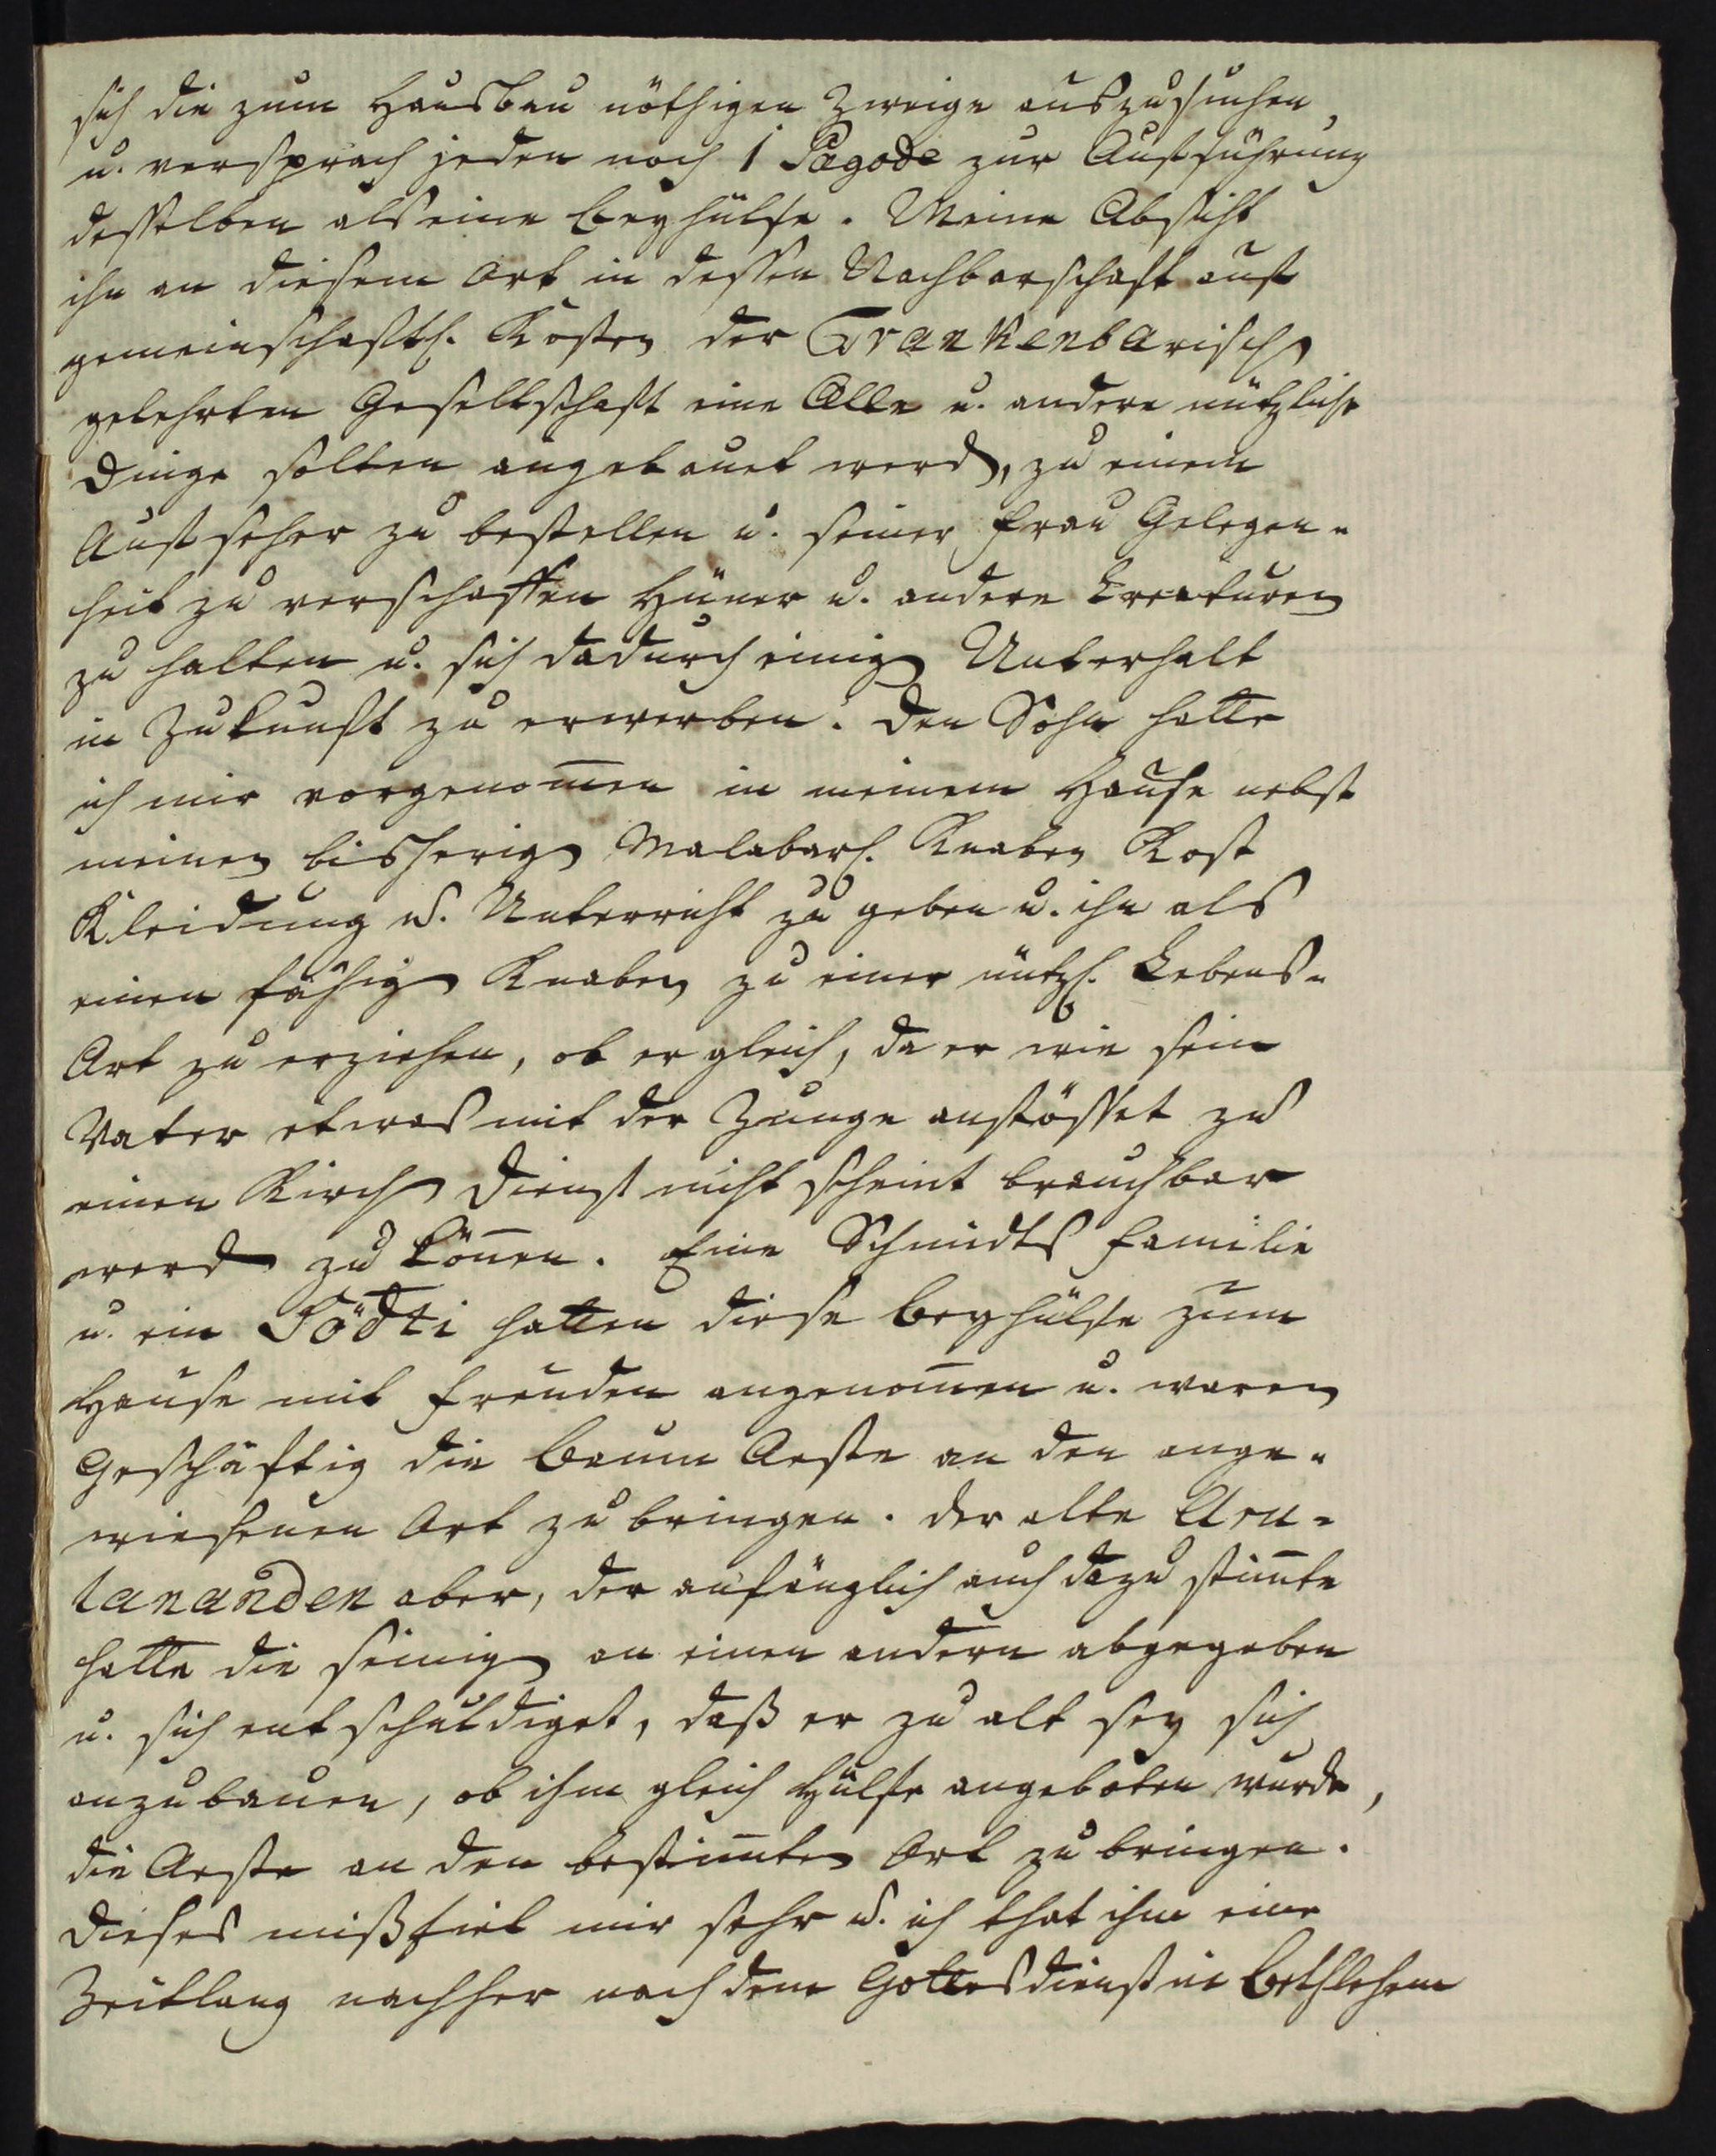 sich die zum Hausbau nöthigen Zweige auszusuchen,
u. versprach jeden noch 1 Pagode zur Aufführung
desselben als eine Beyhülfe. Meine Absicht
ihn an diesem Ort in dessen Nachbarschaft auf
gemeinschaftl. Kosten der Trankenbarisch
gelehrten Gesellschaft eine Allee u. andere nützliche
Dinge solten angebauet werd, zu einem
Aufseher zu bestellen u. seiner Frau Gelegen-
heit zu verschaffen Hüner u. andere Creaturen
zu halten u. sich dadurch einig Unterhalt
in Zukunft zu erwerben. Den Sohn hatte
ich mir vorgenom̄en in meinem Hause nebst
meinen bisherig Malabar. Knaben Kost
Kleidung u. Unterricht zu geben u. ihn als
einen fähig Knaben zu einer nützl. Lebens-
Art zu erziehen, ob er gleich, da er wie sein
Vater etwas mit der Zunge anstösset zu
einen Kirch Dienst nicht scheint brauchbar
werd zu kön̄en. Eine Schmidts Familie
u. ein Tödti hatten diese Beyhülfe zum
Hause mit Freuden angenom̄en u. waren
Geschäftig die Baum Aeste an den ange-
wiesenen Ort zu bringen. Der alte Aru-
lananden aber, der anfänglich auch dazu stim̄te
hatte die seinig an einen andern abgegeben
u. sich entschuldiget, daß er zu alt sey sich
anzubauen, ob ihm gleich Hülfe angeboten wurde,
die Aeste an den bestim̄ten Ort zu bringen.
Dieses mißfiel mir sehr u. ich that ihm eine
Zeitlang nachher nach dem Gottesdienst in Bethlehem